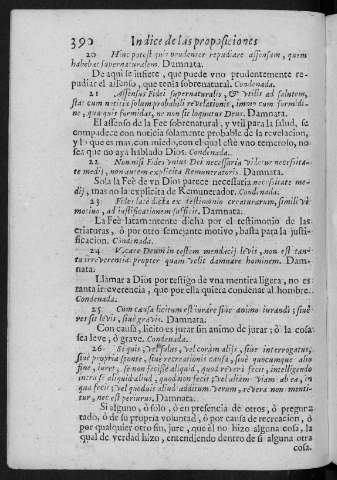 390 Indice de las proposiciones
20 Hinc potest quis prudenter repudiare assensum, quem
habebat supernaturalem. Damnata.
De aqui se infiere, que puede vno prudentemente re-
pudiar el assenso, que tenia sobrenatural. Condenada.
21 Assensus Fidei supernaturalis, & vtilis ad salutem,
stat cum notitia solum probabili revelationis, immo cum formidi-
ne, qua quis formidat, ne non sit loquutus Deus. Damnata.
El assenso de la Fee sobrenatural, y vtil para la salud, se
compadece con noticia solamente probable de la revelacion,
y lo que es mas, con miedo, con el qual teme vno temerolo, no
sea que no aya hablado Dios. Condenada.
22 Non nisi Fides vnius Dei necessaria videtur necessita-
te medij, non autem explicita Remuneratoris. Damnata.
Sola la Feè de vn Dios parece necessaria necessitate me-
dij, mas no la explicita de Remunerador. Condenada.
23 Fides latè dicta ex testimonio creaturarum, simili ve
motivo, ad iustificationem sufficit. Damnata.
La Feè latamente dicha por el testimonio de las
criaturas, ò por otro semejante motivo, basta para la justi-
ficacion. Condenada.
24 Vocare Deum in testem mendacij levis, non est tan-
ta irreverentia propter quam velit damnare hominem. Dam-
nata.
Llamar a Dios por testigo de vna mentira ligera, no es
tanta irreverencia, que por ella quiera condenar al hombre.
Condenada.
25 Cum causa licitum est iurare sine animo iurandi, sive
res sit levis, sivè gravis. Damnata.
Con causa, licito es jurar sin animo de jurar; ò la cosa
sea leve, ò grave. Condenada.
26 Si quis, vel solus, vel coram alijs, sive interrogatus,
sivè propria sponte, sivè recreationis causa, sivè quocumque alio
fine, iuret, se non fecisse aliquid, quod reverà fecit, intelligendo
intra se aliquid aliud, quod non fecit, vel aliam viam ab ea, in
qua fecit, vel quodvis aliud additum verum, revera non menti-
tur, nec est periurus. Damnata.
Si alguno, ò solo, ò en presencia de otros, ò pregun-
tado, ò de su propria voluntad, ò por causa de recreacion, ò
por qualquier otro fin, jure, que èl no hizo alguna cosa, la
qual de verdad hizo, entendiendo dentro de si alguna otra
cosa.